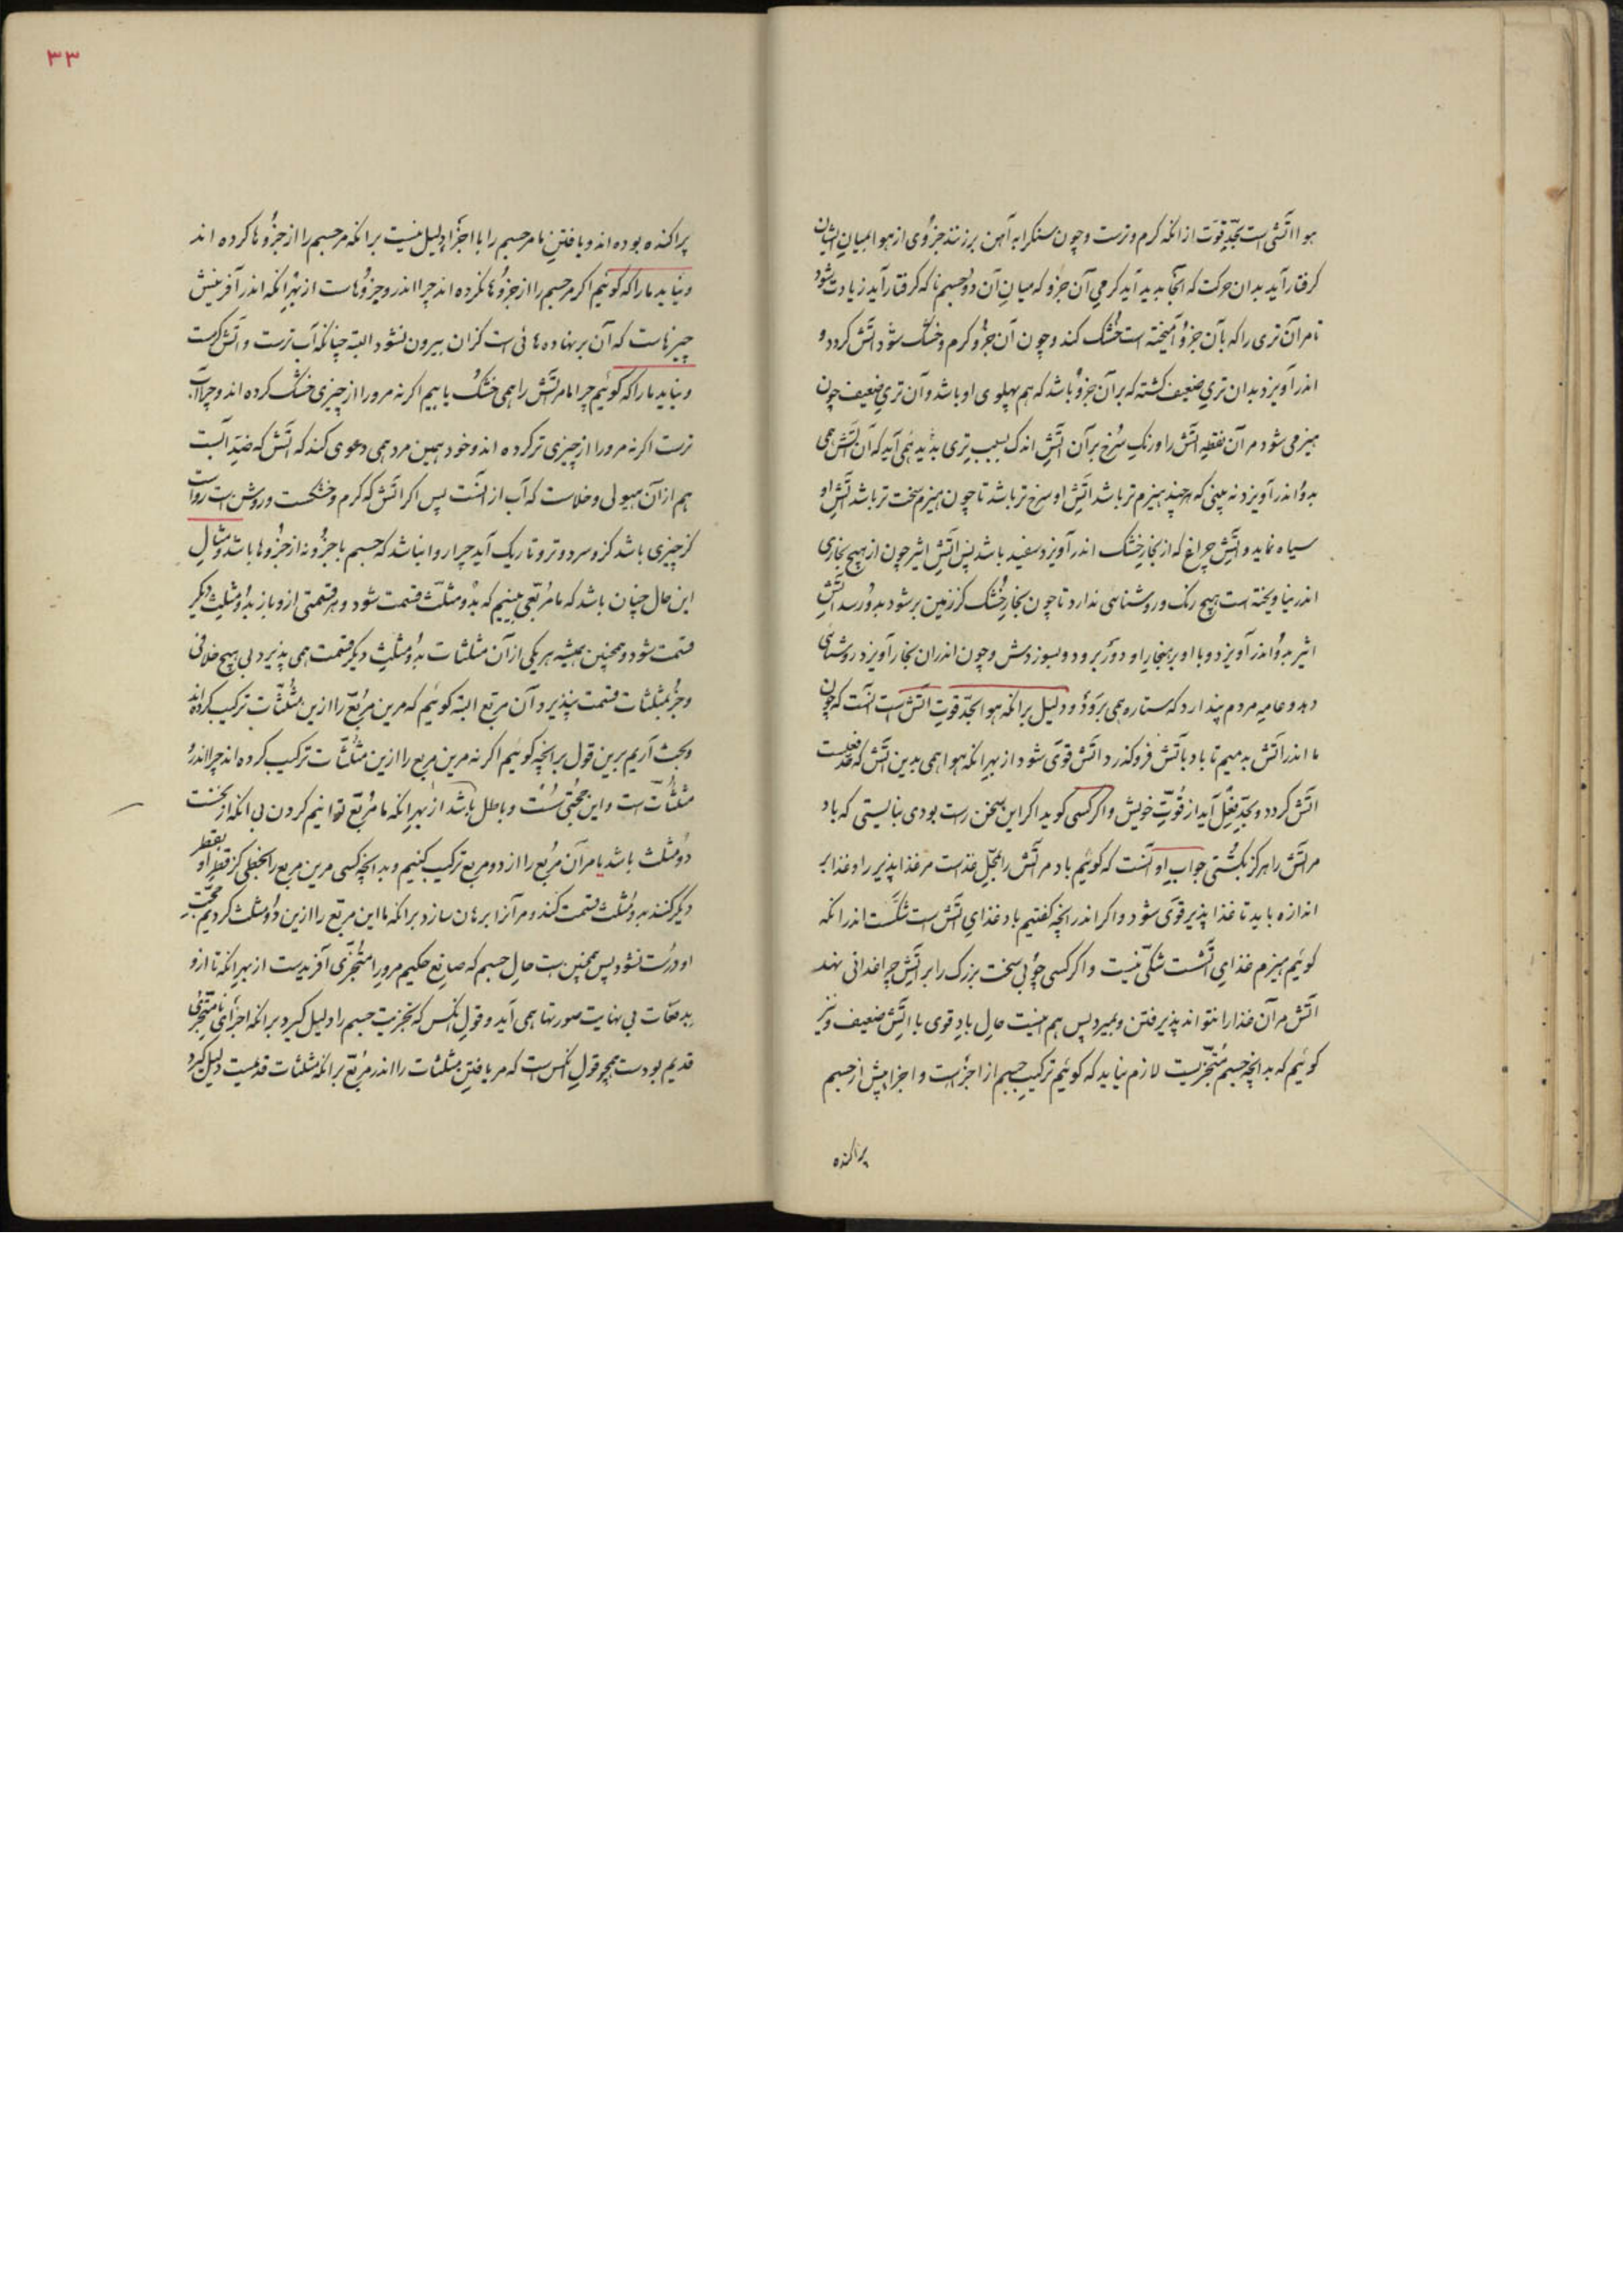 هوا اتشی است بحدّ قوّت از انکه کرم و ترست و چون سنک را به آهن برزنند جزوی از هوا بمیان ایشان
کرفتار آید بدان حرکت که انجا پدید آید کرمی آن جزو که میان آن دو جسم ناکه کرفتار آید زیادت شود
تا مر آن تری را که بآن جزو آمیخته است خشک کند و چون آن جزو کرم و خشک شود اتش کردد و
اندر آویزد بدان تریِ ضعیف کشته که بر آن جزو باشد که هم پهلوی او باشد و آن تریِ ضعیف چون
هیزمی شود مر آن نقطهٔ اتش را و رنک سُرخ بر آن اتشِ اندک بسبب تری پدید همی آید که آن اتش همی
بدو اندر آویزد نه بینی که هر چند هیزم تر باشد اتشِ او سرخ تر باشد تا چون هیزم سخت تر باشد اتشِ او
سیاه نماید و اتشِ چراغ که از بخارِ خشک اندر آویزد سفید باشد پس اتشِ اثیر چون از هیچ بخاری
اندر نیاویخته است هیچ رنک و روشنایی ندارد تا چون بخارِ خشک کز زمین برشود بدو رسد اتشِ
اثیر بدو اندر آویزد و با او بر هنجارِ او دوَد و بسوزدش و چون اندران بخار آویزد روشنائی
دهد و عامهٔ مردم پندارد که ستاره همی بروَد و دلیل بر انکه هوا بحدّ قوّت اتش است انست که چون
ما اندر اتش بدمیم تا باد باتش فرو کذرد اتش قوّی شود از بهرِ انکه هوا همی بدین اتش که بحدّ فعلست
اتش کردد و بحدّ فعل آید از قُوّتِ خویش و اکر کسی کوید اکر این سخن راست بودی نبایستی که باد
مر اتش را هرکز بکُشتی جوابِ او انست که کوئیم باد مر اتش را بمحلّ غذاست مر غذا پذیر را و غذا بر
اندازه باید تا غذا پذیر قوّی شود و اکر اندر انچه کفتیم باد غذایِ اتش است شکّست اندر انکه
کوئیم هیزم غذایِ اتشست شکّی نیست و اکر کسی چوبی سخت بزرک را بر اتشِ چراغدانی نهد
اتش مر آن غذا را نتواند پذیرفتن و بمیرد پس هم اینست حالِ بادِ قوی با اتشِ ضعیف و نیز
کوئیم که بدانچه جسم متجزّیست لازم نیاید که کوئیم ترکیبِ جسم از اجزاست و اجزا پیش از جسم
پراکنده
۳۳
پراکنده بوده اند و یافتنِ ما مر جسم را با اجزا دلیل نیست بر انکه مر جسم را از جزوها کرده اند
و نیاید ما را که کوئیم اکر مر جسم را از جزوها نکرده اند چرا اندرو جزوهاست از بهرِ انکه اندر آفرینش
چیزهاست که آن بر نهاده هائی است کزان بیرون نشود البته چنانکه آب ترست و اتش کرمست
و نیاید ما را که کوئیم چرا ما مر اتش را همی خشک یابیم اکر نه مرو را از چیزی خشک کرده اند و چرا آب
ترست اکر نه مرو را از چیزی تر کرده اند و خود همین مرد همی دعوی کند که اتش که ضدِّ آبست
هم از آن هیولی و خلاست که آب از انست پس اکر اتش که کرم و خشکست و روشن است رواست
کز چیزی باشد کزو سرد و تر و تاریک آید چرا روا نباشد که جسم با جزو نه از جزوها باشد و مثالِ
این حال چنان باشد که ما مربّعی بینیم که بدو مثلّث قسمت شود و هر قسمتی ازو باز بدو مثلّثِ دیکر
قسمت شود و همچنین همیشه هر یکی از آن مثلثات بدو مثلثِ دیکر قسمت همی پذیرد بی هیچ خلافی
و جز بمثلثات قسمت نپذیرد آن مربّع البته کوئیم که مرین مربّع را ازین مثلّثات ترکیب کرده اند
و حجت آریم برین قول بر انچه کوئیم اکر نه مرین مربع را ازین مثلّثات ترکیب کرده اند چرا اندرو
مثلّثات است و این حجّتی سُست و باطل باشد از بهرِ انکه ما مُربّع توانیم کردن بی انکه از نخست
دو مثلث باشد یا مر آن مربع را از دو مربع ترکیب کنیم و بدانچه کسی مرین مربع را بخطی کز قطرِ او بقطرِ
دیکر کشد بدو مثلّث قسمت کند و مر آنرا برهان سازد بر انکه ما این مربّع را ازین دو مثلث کردیم حجّتِ
او درست نشود پس همچنین است حالِ جسم که صانعِ حکیم مرو را متجزّی آفریدست از بهرِ انکه تا ازو
بدفعات بی نهایت صورتها همی آید و قولِ انکس که تجزیتِ جسم را دلیل کیرد بر انکه اجزای نامتجزّی
قدیم بودست همچو قولِ انکس است که مر یافتنِ مثلثات را اندر مربّع بر انکه مثلثات قدیمست دلیل کیرد